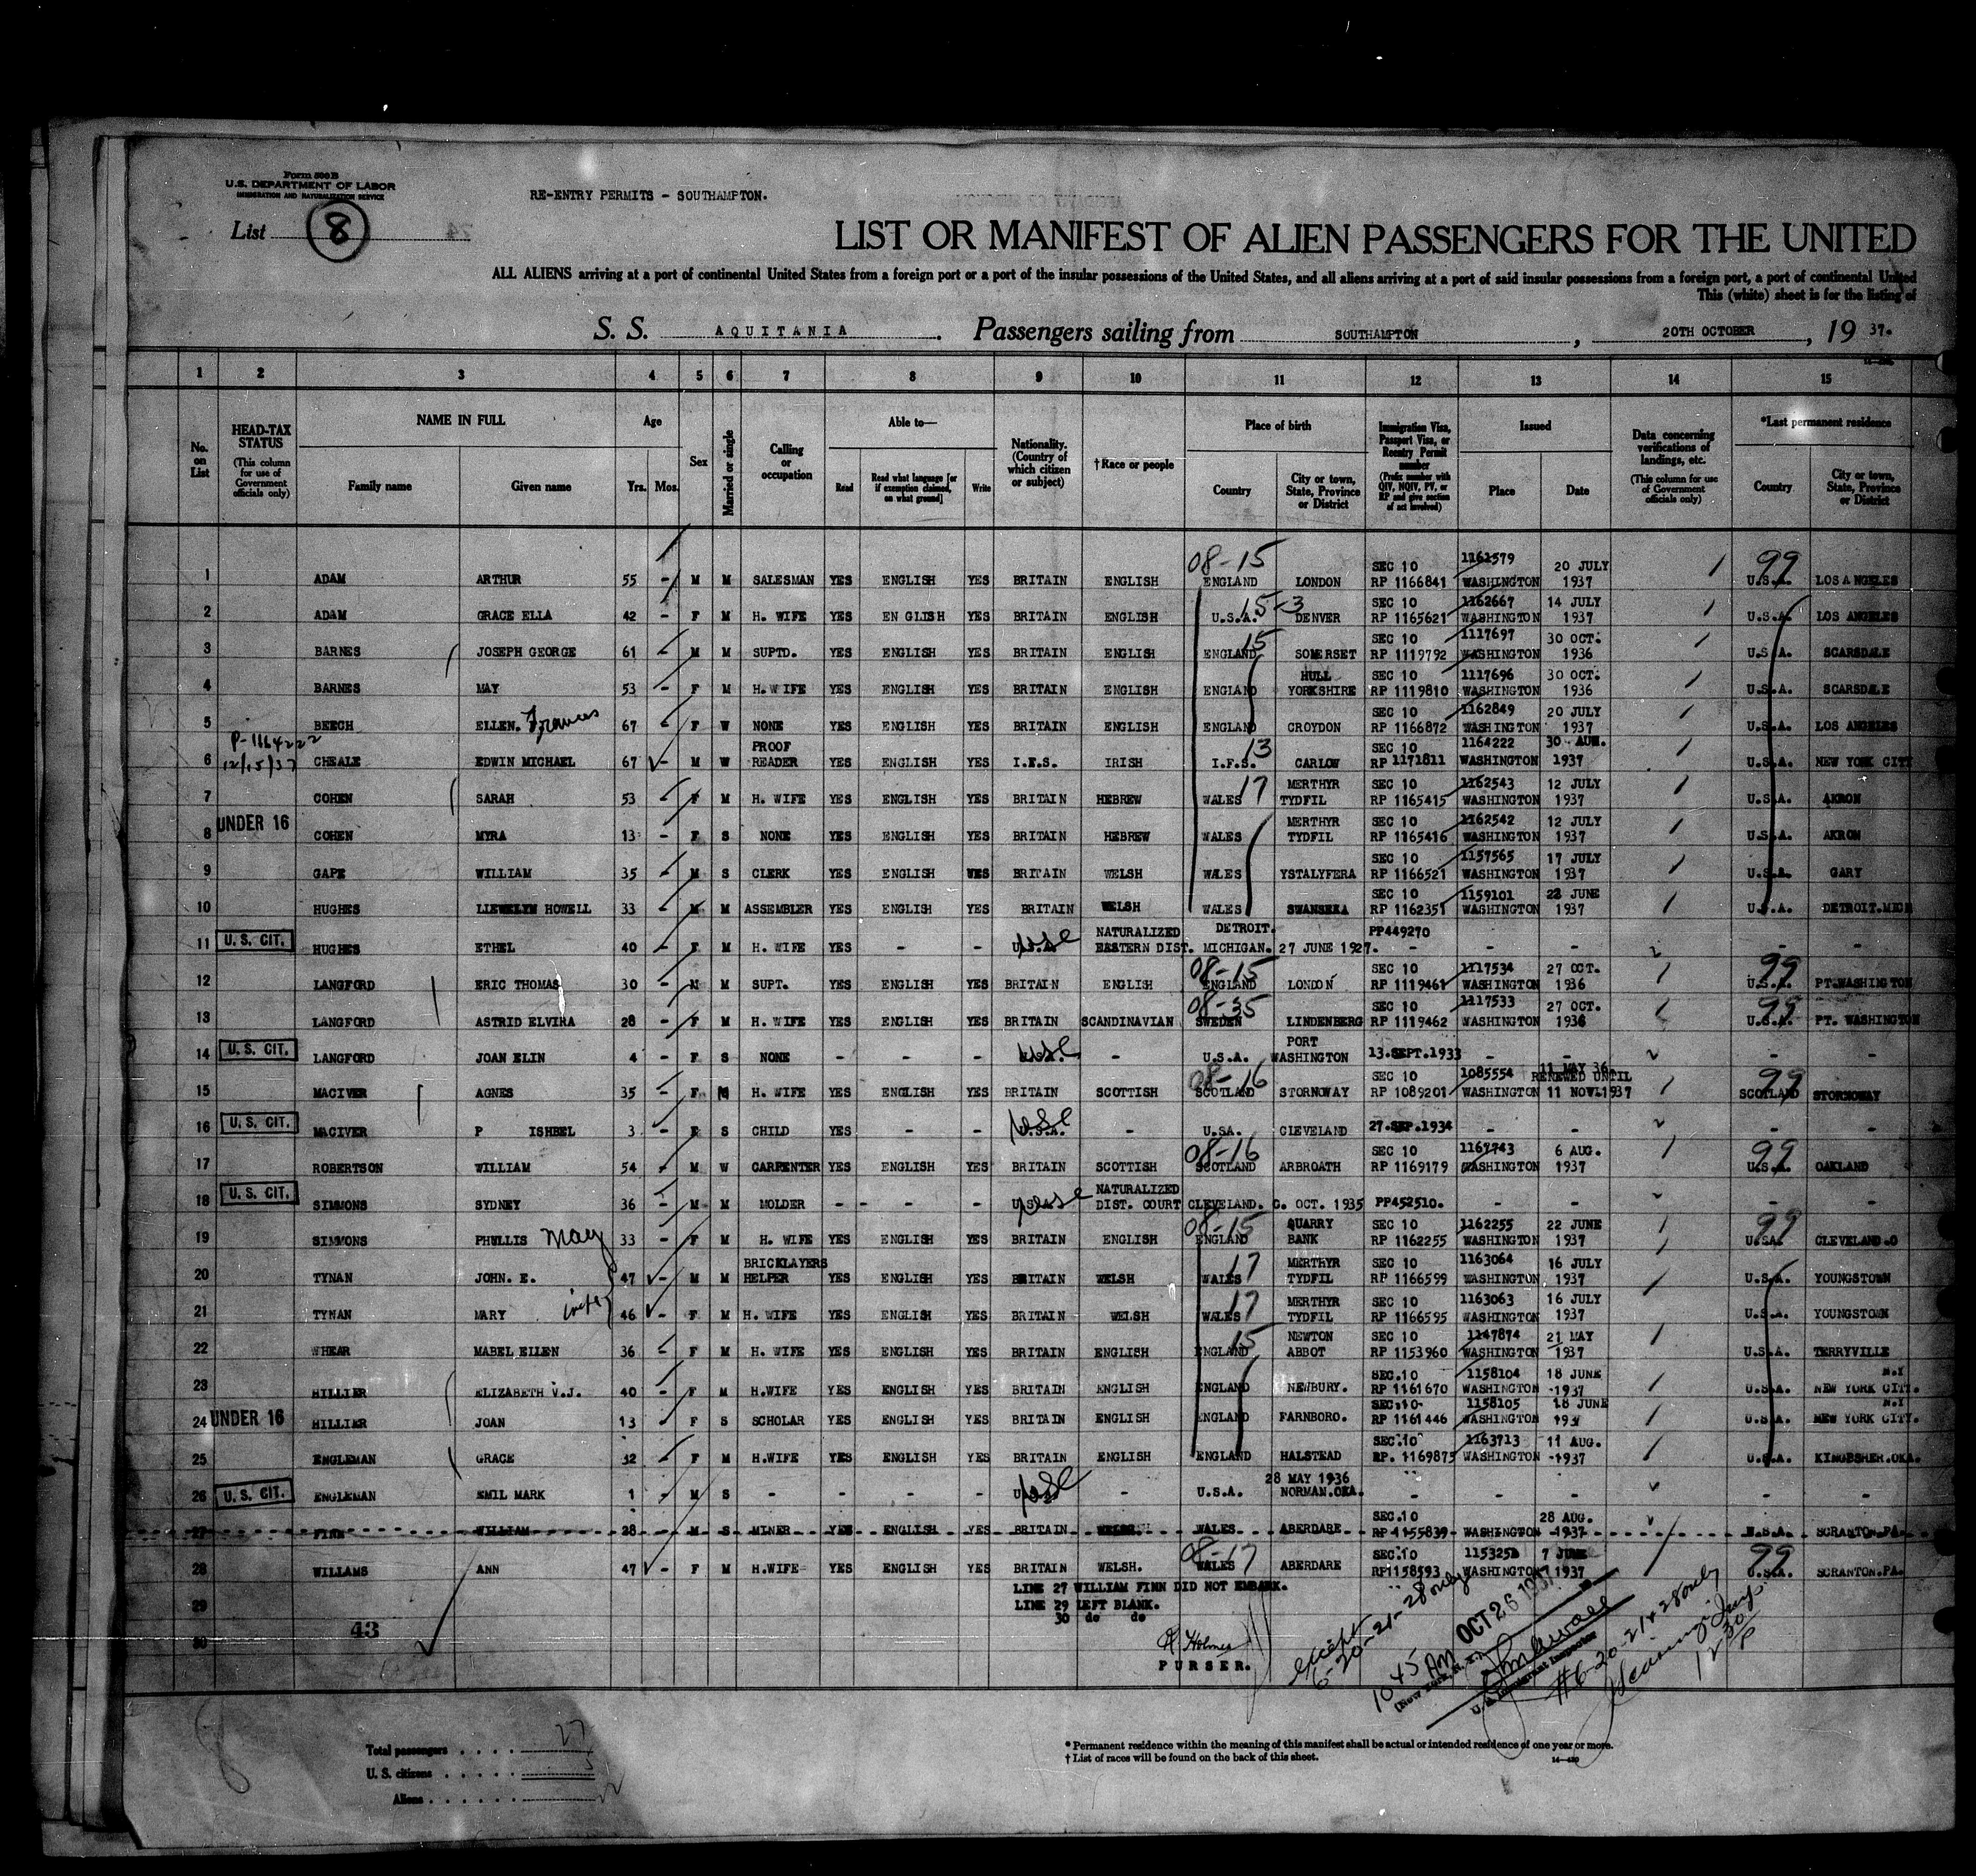 Form 500 B
U.S. DEPARTMENT OF LABOR
IMMIGRATION AND NATURALIZATION SERVICE
RE-ENTRY PERMITS - SOUTHAMPTON.
List 8
LIST OR MANIFEST OF ALIEN PASSENGERS FOR THE UNITED
ALL ALIENS arriving at a port of continental United States from a foreign port or a port of the insular possessions of the United States, and all aliens arriving at a port of said insular possessions from a foreign port, a port of continental United
This (white) sheet is for the listing of
S. S. AQUITANIA. Passengers sailing from SOUTHAMPTON, 20TH OCTOBER, 19 37.
1 2 3 4 5 6 7 8 9 10 11 12 13 14 15
No. on List
HEAD-TAX STATUS (This column for use of Government officials only)
NAME IN FULL Family name Given name
Age Yrs. Mos.
Sex
Married or single
Calling or occupation
Able to— Read Read what language [or if exemption claimed, on what ground] Write
Nationality. (Country of which citizen or subject)
†Race or people
Place of birth Country City or town, State, Province or District
Immigration Visa, Passport Visa, or Reentry Permit number (Prefix number with QIV, NQIV, PV, or RP and give section of act involved)
Issued Place Date
Data concerning verifications of landings, etc. (This column for use of Government officials only)
*Last permanent residence Country City or town, State, Province or District
08-15 SEC 10 1161579 20 JULY 99
1 ADAM ARTHUR 55 - M M SALESMAN YES ENGLISH YES BRITAIN ENGLISH ENGLAND LONDON RP 1166841 WASHINGTON 1937 U.S.A. LOS ANGELES
15-3 SEC 10 1162667 14 JULY
2 ADAM GRACE ELLA 42 - F M H. WIFE YES EN GLISH YES BRITAIN ENGLISH U.S.A. DENVER RP 1165621 WASHINGTON 1937 U.S.A. LOS ANGELES
15 SEC 10 1117697 30 OCT.
3 BARNES JOSEPH GEORGE 61 - M M SUPTD. YES ENGLISH YES BRITAIN ENGLISH ENGLAND SOMERSET RP 1119792 WASHINGTON 1936 U.S.A. SCARSDALE
HULL SEC 10 1117696 30 OCT.
4 BARNES MAY 53 - F M H. WIFE YES ENGLISH YES BRITAIN ENGLISH ENGLAND YORKSHIRE RP 1119810 WASHINGTON 1936 U.S.A. SCARSDALE
SEC 10 1162849 20 JULY
5 BEECH ELLEN. Frances 67 - F W NONE YES ENGLISH YES BRITAIN ENGLISH ENGLAND CROYDON RP 1166872 WASHINGTON 1937 U.S.A. LOS ANGELES
P-1164222 PROOF 13 SEC 10 1164222 30 AUG.
6 12/15/37 CHEALE EDWIN MICHAEL 67 - M W READER YES ENGLISH YES I.F.S. IRISH I.F.S. CARLOW RP 1171811 WASHINGTON 1937 U.S.A. NEW YORK CITY
17 MERTHYR SEC 10 1162543 12 JULY
7 COHEN SARAH 53 - F M H. WIFE YES ENGLISH YES BRITAIN HEBREW WALES TYDFIL RP 1165415 WASHINGTON 1937 U.S.A. AKRON
UNDER 16 MERTHYR SEC 10 1162542 12 JULY
8 COHEN MYRA 13 - F S NONE YES ENGLISH YES BRITAIN HEBREW WALES TYDFIL RP 1165416 WASHINGTON 1937 U.S.A. AKRON
SEC 10 1157565 17 JULY
9 GAPE WILLIAM 35 - M S CLERK YES ENGLISH YES BRITAIN WELSH WALES YSTALYFERA RP 1166521 WASHINGTON 1937 U.S.A. GARY
SEC 10 1159101 22 JUNE
10 HUGHES LLEWELYN HOWELL 33 - M M ASSEMBLER YES ENGLISH YES BRITAIN WELSH WALES SWANSEA RP 1162351 WASHINGTON 1937 U.S.A. DETROIT.MICH
U. S. CIT. NATURALIZED DETROIT. PP449270
11 HUGHES ETHEL 40 - F M H. WIFE YES - - U.S.A. EASTERN DIST. MICHIGAN. 27 JUNE 1927. - - - - -
08-15 SEC 10 1117534 27 OCT. 99
12 LANGFORD ERIC THOMAS 30 - M M SUPT. YES ENGLISH YES BRITAIN ENGLISH ENGLAND LONDON RP 1119461 WASHINGTON 1936 U.S.A. PT.WASHINGTON
08-35 SEC 10 1117533 27 OCT. 99
13 LANGFORD ASTRID ELVIRA 28 - F M H. WIFE YES ENGLISH YES BRITAIN SCANDINAVIAN SWEDEN LINDENBERG RP 1119462 WASHINGTON 1936 U.S.A. PT. WASHINGTON
U. S. CIT. PORT
14 LANGFORD JOAN ELIN 4 - F S NONE - - - U.S.A. - U.S.A. WASHINGTON 13.SEPT.1933 - - - -
08-16 SEC 10 1085554 11 MAY 36. RENEWED UNTIL 99
15 MACIVER AGNES 35 - F M H. WIFE YES ENGLISH YES BRITAIN SCOTTISH SCOTLAND STORNOWAY RP 1089201 WASHINGTON 11 NOV.1937 SCOTLAND STORNOWAY
U. S. CIT.
16 MACIVER P ISHBEL 3 - F S CHILD YES - - U.S.A. - U.SA. CLEVELAND 27.SEP.1934 - - - -
08-16 SEC 10 1167743 6 AUG. 99
17 ROBERTSON WILLIAM 54 - M W CARPENTER YES ENGLISH YES BRITAIN SCOTTISH SCOTLAND ARBROATH RP 1169179 WASHINGTON 1937 U.S.A. OAKLAND
U. S. CIT. NATURALIZED
18 SIMMONS SYDNEY 36 - M M MOLDER - - - U.S.A. DIST. COURT CLEVELAND. O. OCT. 1935 PP452510. - - - -
08-15 QUARRY SEC 10 1162255 22 JUNE 99
19 SIMMONS PHYLLIS May 33 - F M H. WIFE YES ENGLISH YES BRITAIN ENGLISH ENGLAND BANK RP 1162255 WASHINGTON 1937 U.SA. CLEVELAND.O
BRICKLAYERS 17 MERTHYR SEC 10 1163064 16 JULY
20 TYNAN JOHN. E. 47 - M M HELPER YES ENGLISH YES BRITAIN WELSH WALES TYDFIL RP 1166599 WASHINGTON 1937 U.S.A. YOUNGSTOWN
17 MERTHYR SEC 10 1163063 16 JULY
21 TYNAN MARY wife 46 - F M H. WIFE YES ENGLISH YES BRITAIN WELSH WALES TYDFIL RP 1166595 WASHINGTON 1937 U.S.A. YOUNGSTOWN
15 NEWTON SEC 10 1147874 21 MAY
22 WHEAR MABEL EILEN 36 - F M H. WIFE YES ENGLISH YES BRITAIN ENGLISH ENGLAND ABBOT RP 1153960 WASHINGTON 1937 U.S.A. TERRYVILLE
SEC.10 1158104 18 JUNE N.Y
23 HILLIER ELIZABETH V.J. 40 - F M H.WIFE YES ENGLISH YES BRITAIN ENGLISH ENGLAND NEWBURY. RP 1161670 WASHINGTON -1937 U.S.A. NEW YORK CITY.
UNDER 16 SEC.10- 1158105 18 JUNE N.Y
24 HILLIER JOAN 13 - F S SCHOLAR YES ENGLISH YES BRITAIN ENGLISH ENGLAND FARNBORO. RP 1161446 WASHINGTON 1937 U.S.A. NEW YORK CITY.
SEC.10 1163713 11 AUG.
25 ENGLEMAN GRACE 32 - F M H.WIFE YES ENGLISH YES BRITAIN ENGLISH ENGLAND HALSTEAD RP. 1169875 WASHINGTON -1937 U.S.A. KINGFSHER.OKA.
U. S. CIT. 28 MAY 1936
26 ENGLEMAN EMIL MARK 1 - M S - - - - - U.S.A. NORMAN.OKA. - - - - -
SEC.10 28 AUG.
27 FINN WILLIAM 28 - M S MINER YES ENGLISH YES BRITAIN WELSH. WALES ABERDARE RP 1155839 WASHINGTON 1937 U.S.A. SCRANTON.PA.
08-17 SEC.10 115325 7 JUNE 99
28 WILLAMS ANN 47 - F M H.WIFE YES ENGLISH YES BRITAIN WELSH. WALES ABERDARE RP1158593 WASHINGTON 1937 U.S.A. SCRANTON.PA.
LINE 27 WILLIAM FINN DID NOT EMBARK.
29 LINE 29 LEFT BLANK.
30 do do
30 43
Holmes
PURSER.
except 6-20-21-28 only
10 45 AM OCT 26 1937
(New York, N.Y.)
U.S. Immigrant Inspector
#6-20-21+28 only
12 30 P
8
Total passengers 27
U. S. citizens 5
Aliens
* Permanent residence within the meaning of this manifest shall be actual or intended residence of one year or more.
† List of races will be found on the back of this sheet.